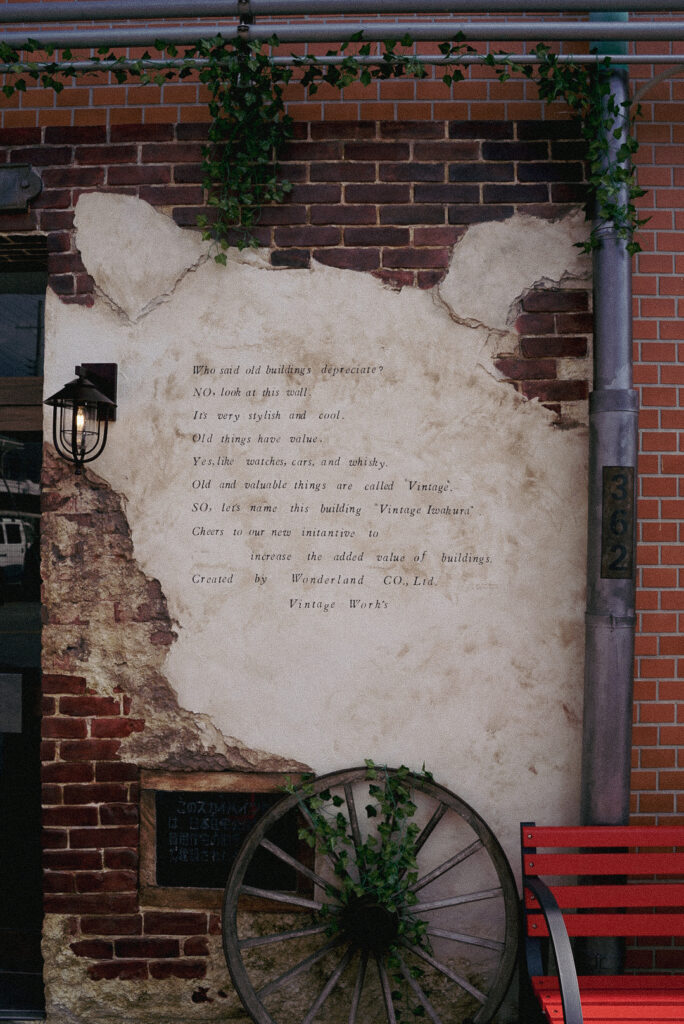 Who said old buildings depreciate?
NO, look at this wall.
It's very stylish and cool.
Old things have value.
Yes, like watches, cars, and whisky.
Old and valuable things are called "Vintage".
SO, let's name this building "Vintage Iwakura".
Cheers to our new initantive to
increase the added value of buildings.
Created by Wonderland CO., Ltd.
Vintage Work's
362